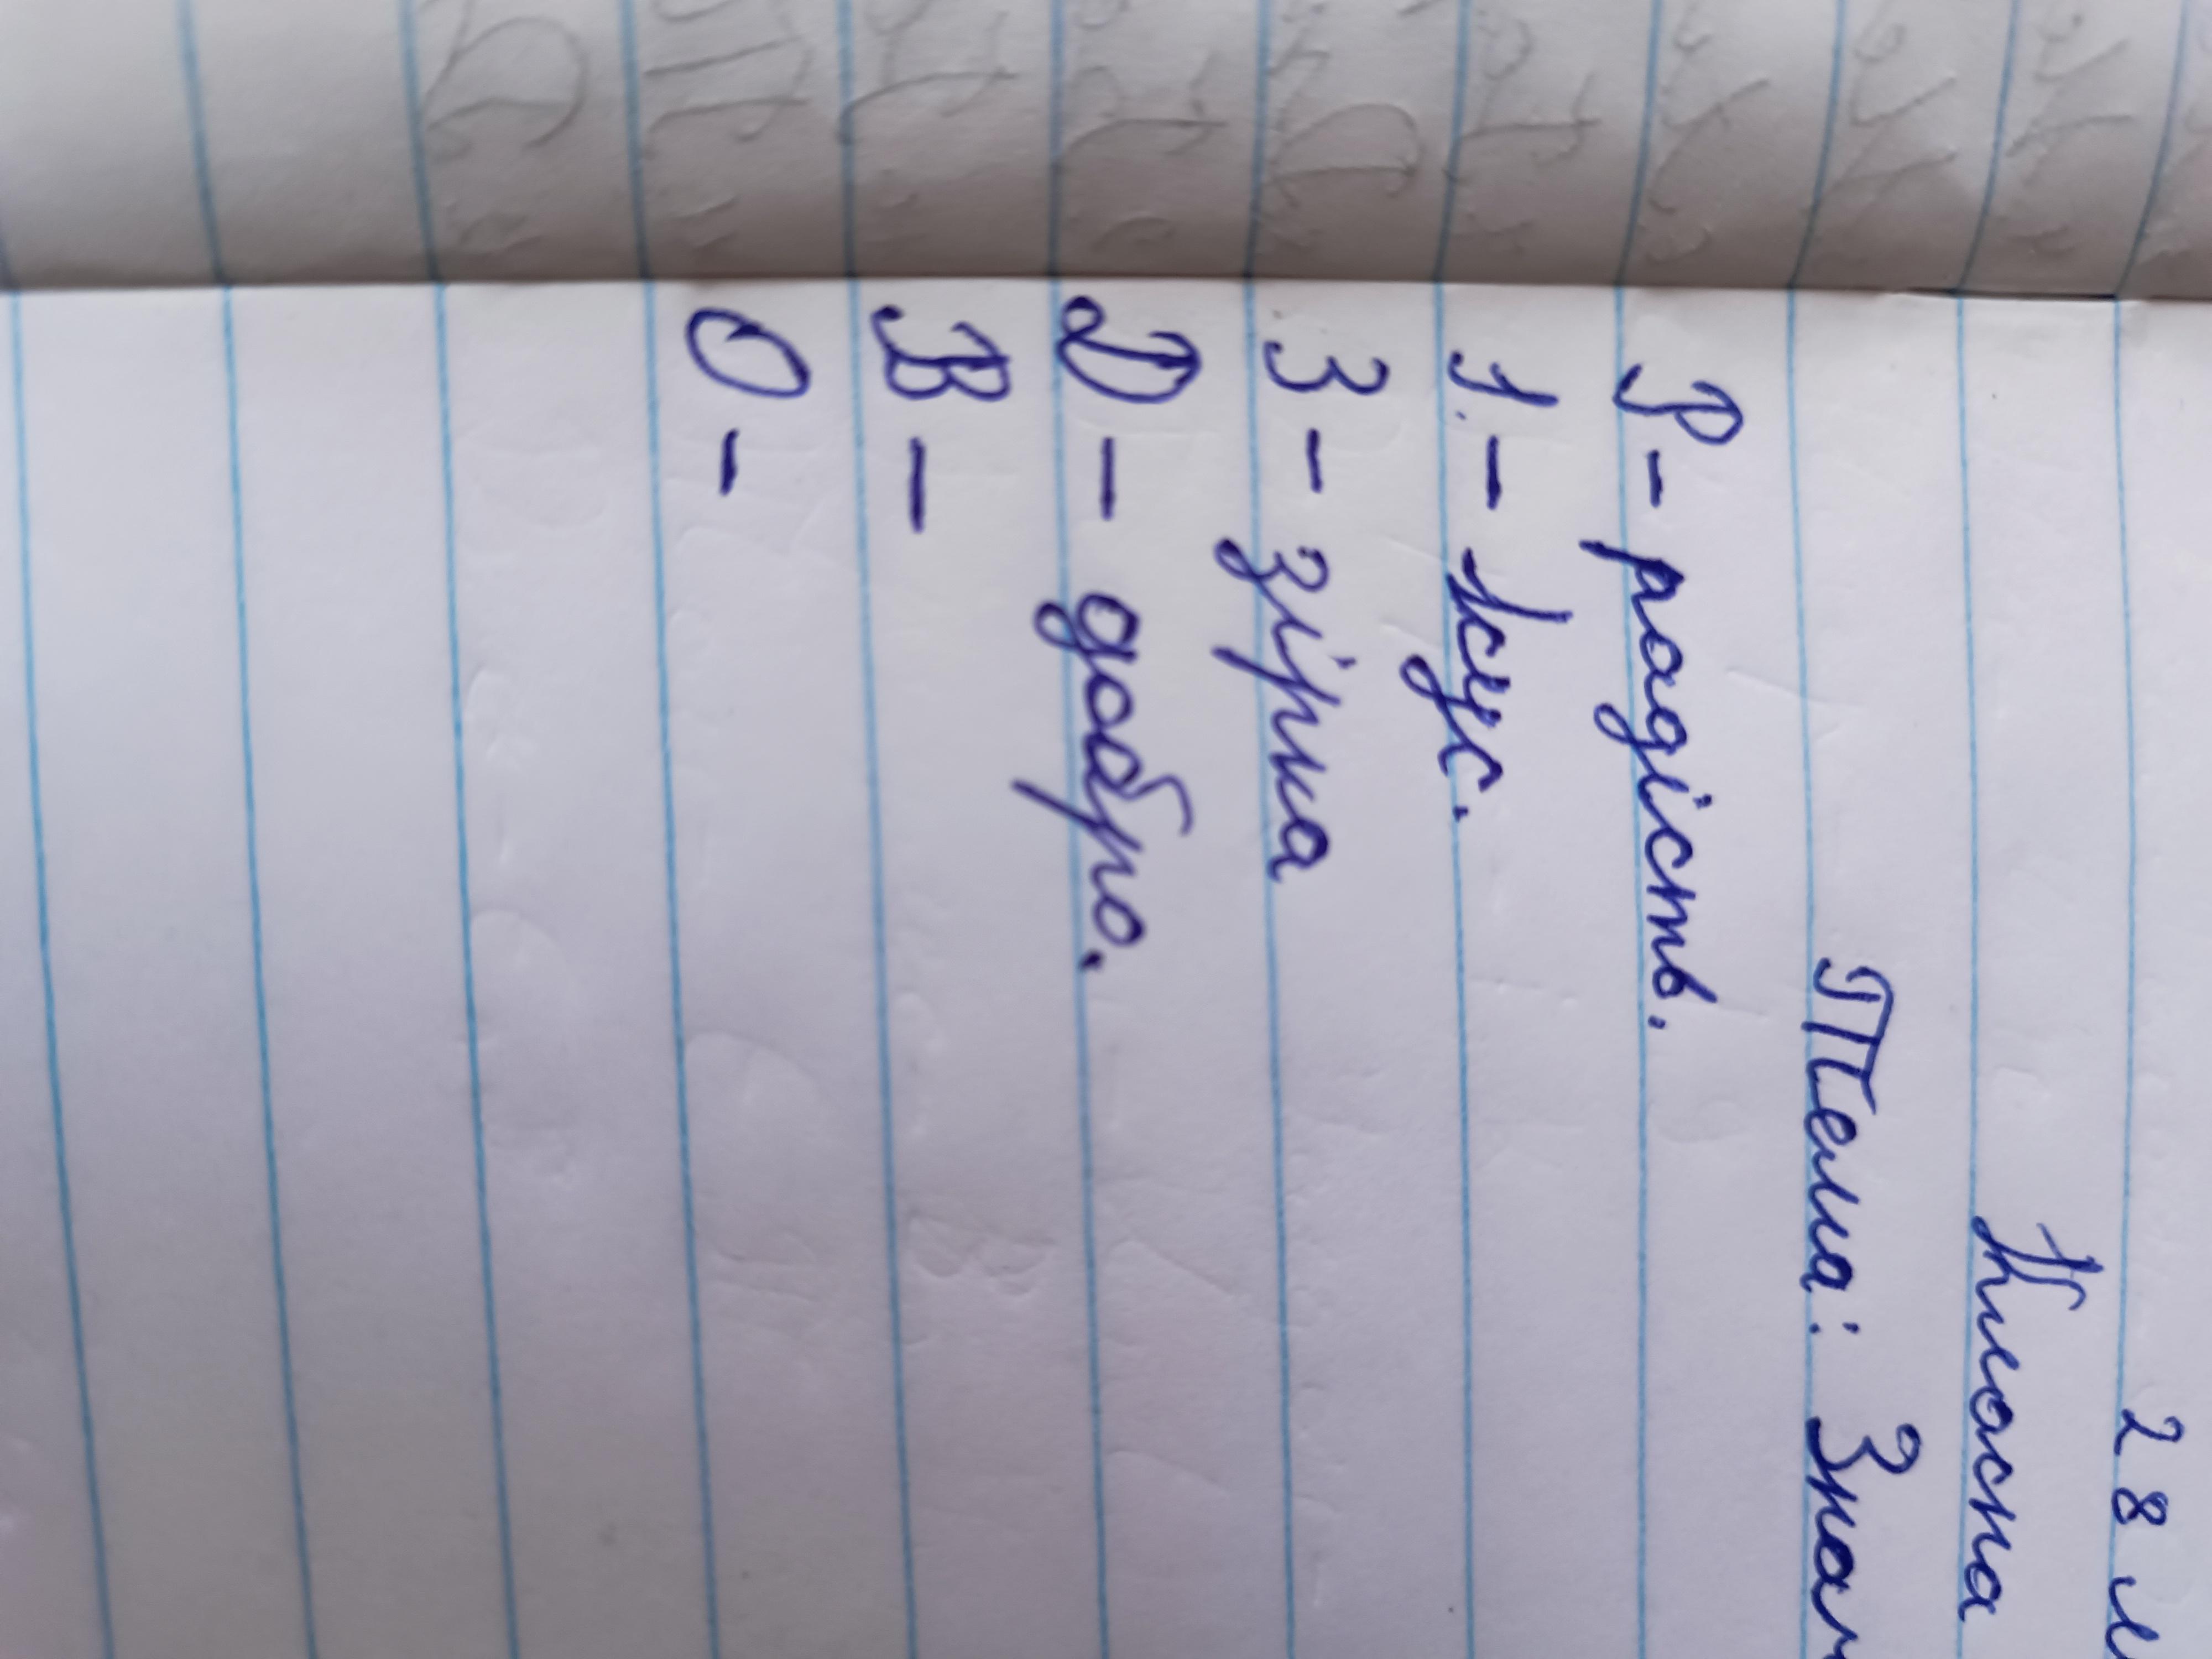 28
Класна
Тема:
Р - радість.
І. - Ісус.
З - зірка
Д - добро.
В -
О -